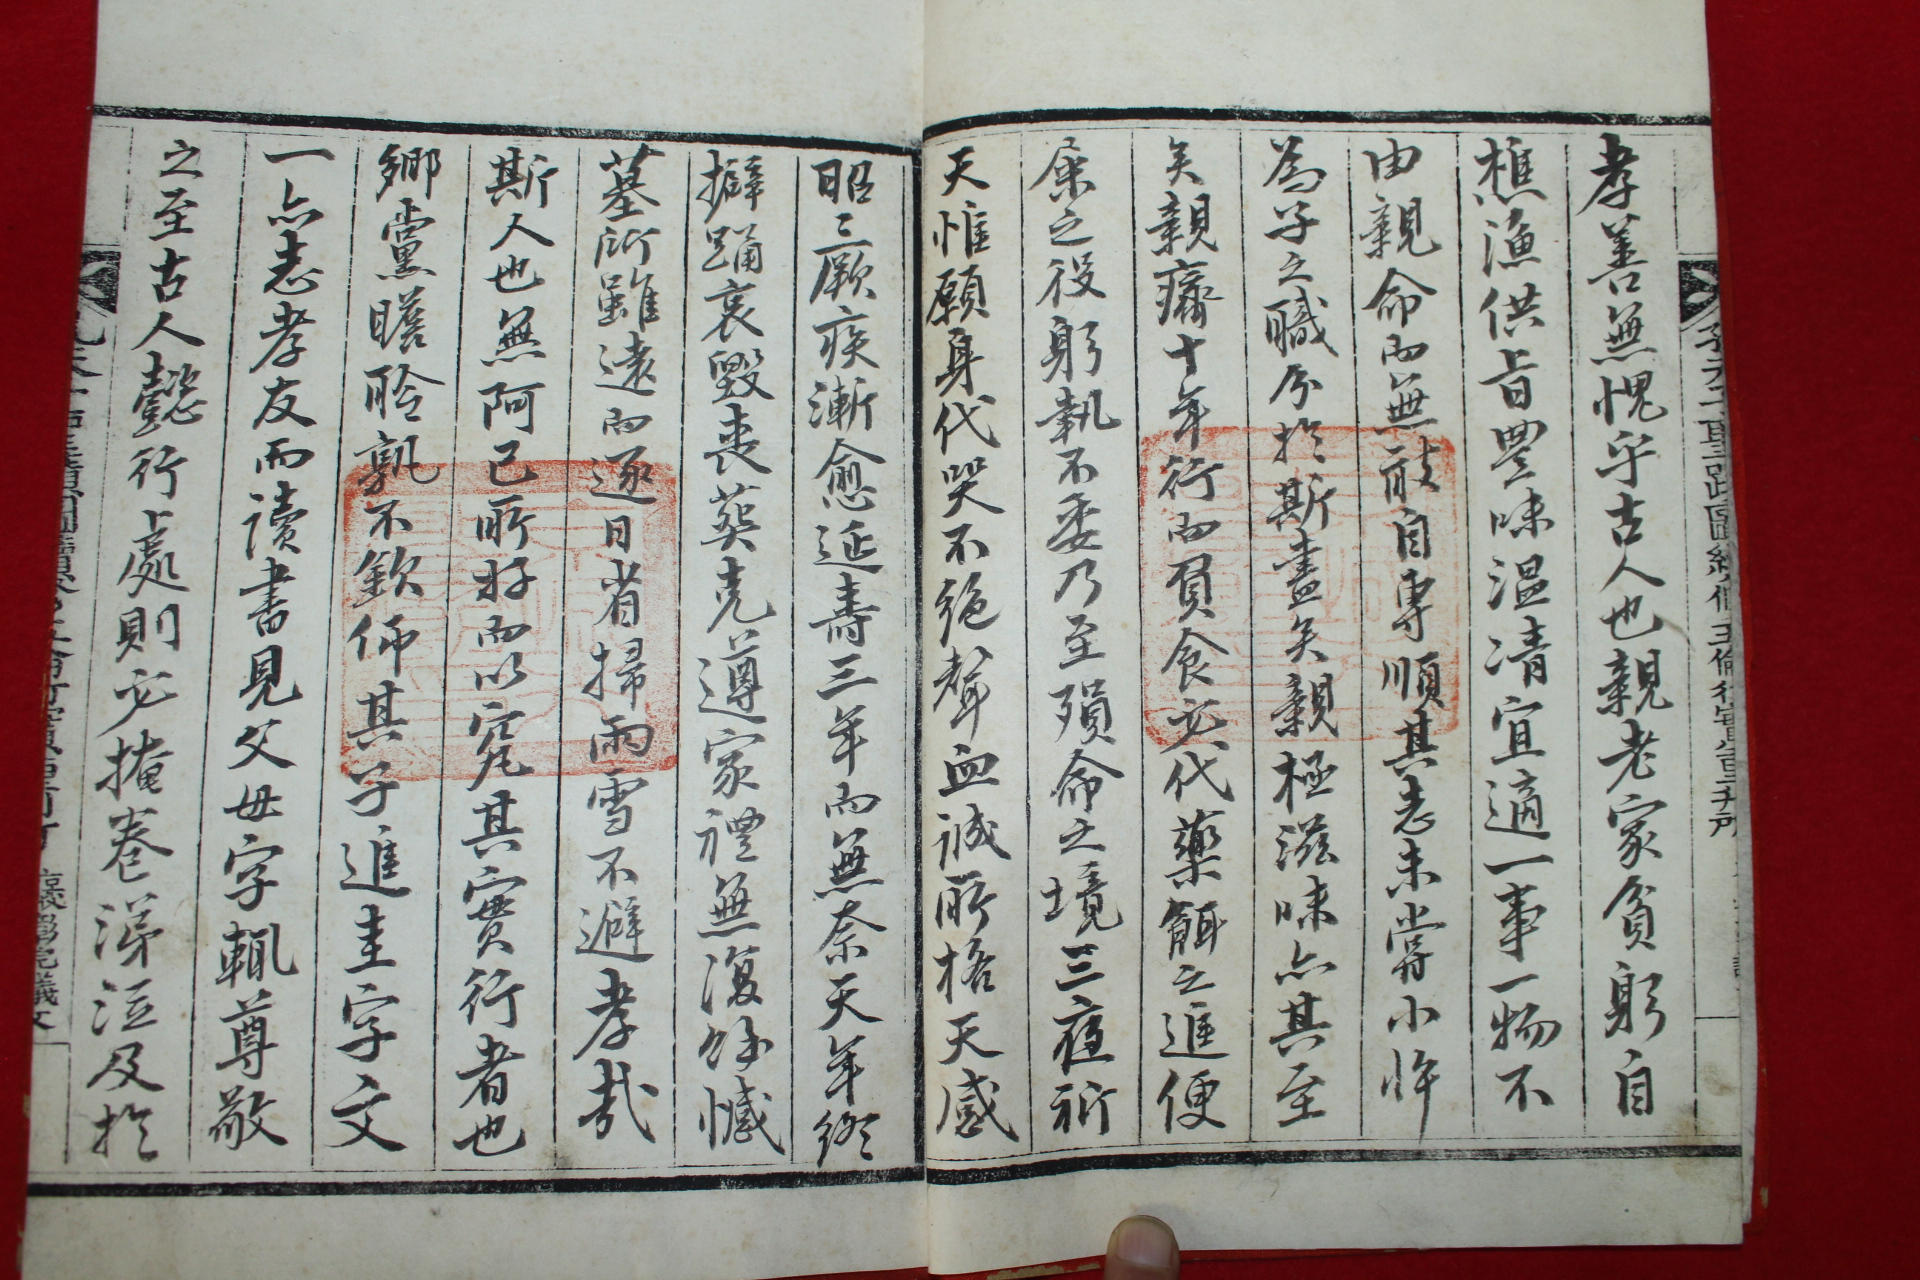 孝善無愧乎古人也親老家貧躬自
樵漁供旨豊味温凊宜適一事一物不
由親命而無敢自專順其志未嘗小忤
為子之職分於斯盡矣親極滋味亦其至
矣親癠十年行而負食必代藥餌之進便
屎之役躬執不委乃至殞命之境三夜祈
天惟願身代哭不絶聲血誠所格天感
昭三厥疾漸愈延壽三年而無奈天年終
擗踊哀毀喪葬克遵家禮無復餘憾
墓所雖遠而逐日省掃雨雪不避孝哉
斯人也無阿己所好而以究其實行者也
鄉黨瞻聆孰不欽仰其子進圭字文
一亦志孝友而讀書見父母字輒尊敬
之至古人懿行上處則必掩卷涕泣及於